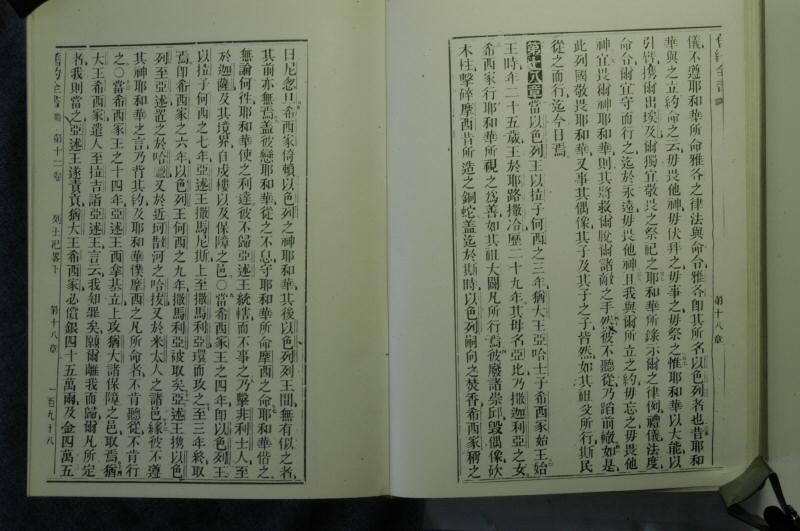 舊約全書
第十八章
儀不遵耶和華所命雅各之律法與命令雅各卽其所名以色列者也昔耶和
華與之立約命之云毋畏他神毋伏拜之毋事之毋祭之惟耶和華以大能以
引臂携爾出埃及爾獨宜敬畏之祭祀之耶和華所錄示爾之律例禮儀法度
命令爾宜守而行之迄於永遠毋畏他神且我與爾所立之約毋忘之毋畏他
神宜畏爾神耶和華則其將救爾脫爾諸敵之手然彼不聽從乃蹈前轍如是
此列國敬畏耶和華又事其偶像其子及其子之子皆然如其祖父所行斯民
從之而行迄今日焉
第十八章當以色列王以拉子何西之三年猶大王亞哈士子希西家始王始
王時年二十五歲王於耶路撒冷歷二十九年其母名亞比乃撒迦利亞之女
希西家行耶和華所視之爲善如其祖大闢凡所行焉彼廢諸崇邱毀偶像砍
木柱擊碎摩西昔所造之銅蛇蓋迄於斯時以色列嗣向之焚香希西家稱之
曰尼忽且希西家倚賴以色列之神耶和華其後以色列列王間無有似之者
其前亦無焉蓋彼戀耶和華從之不息守耶和華所命摩西之命耶和華偕之
無論何徃耶和華使之利達彼不歸亞述王統轄而不事之乃擊非利士人至
於迦薩及其境界自戍樓以及保障之邑○當希西家王之四年卽以色列王
以拉子何西之七年亞述王撒馬尼斯上至撒馬利亞環而攻之至三年終取
焉卽希西家之六年以色列王何西之九年撒馬利亞被取矣亞述王擕以色
列至亞述置之於哈臘又於近河散河之哈拔又於米太人之諸邑緣彼不遵
其神耶和華之言乃背其約及耶和華僕摩西之凡所命者不肯聽從不肯行
之○當希西家王之十四年亞述王西拿基立上攻猶大諸保障之邑取焉猶
大王希西家遣人至拉吉詣亞述王言云我知罪矣願爾離我而歸爾凡所定
者我則當之亞述王遂責猶大王希西家必償銀四十五萬兩及金四萬五
舊約全書
第十二卷
列王紀畧下
第十八章
一百九十八